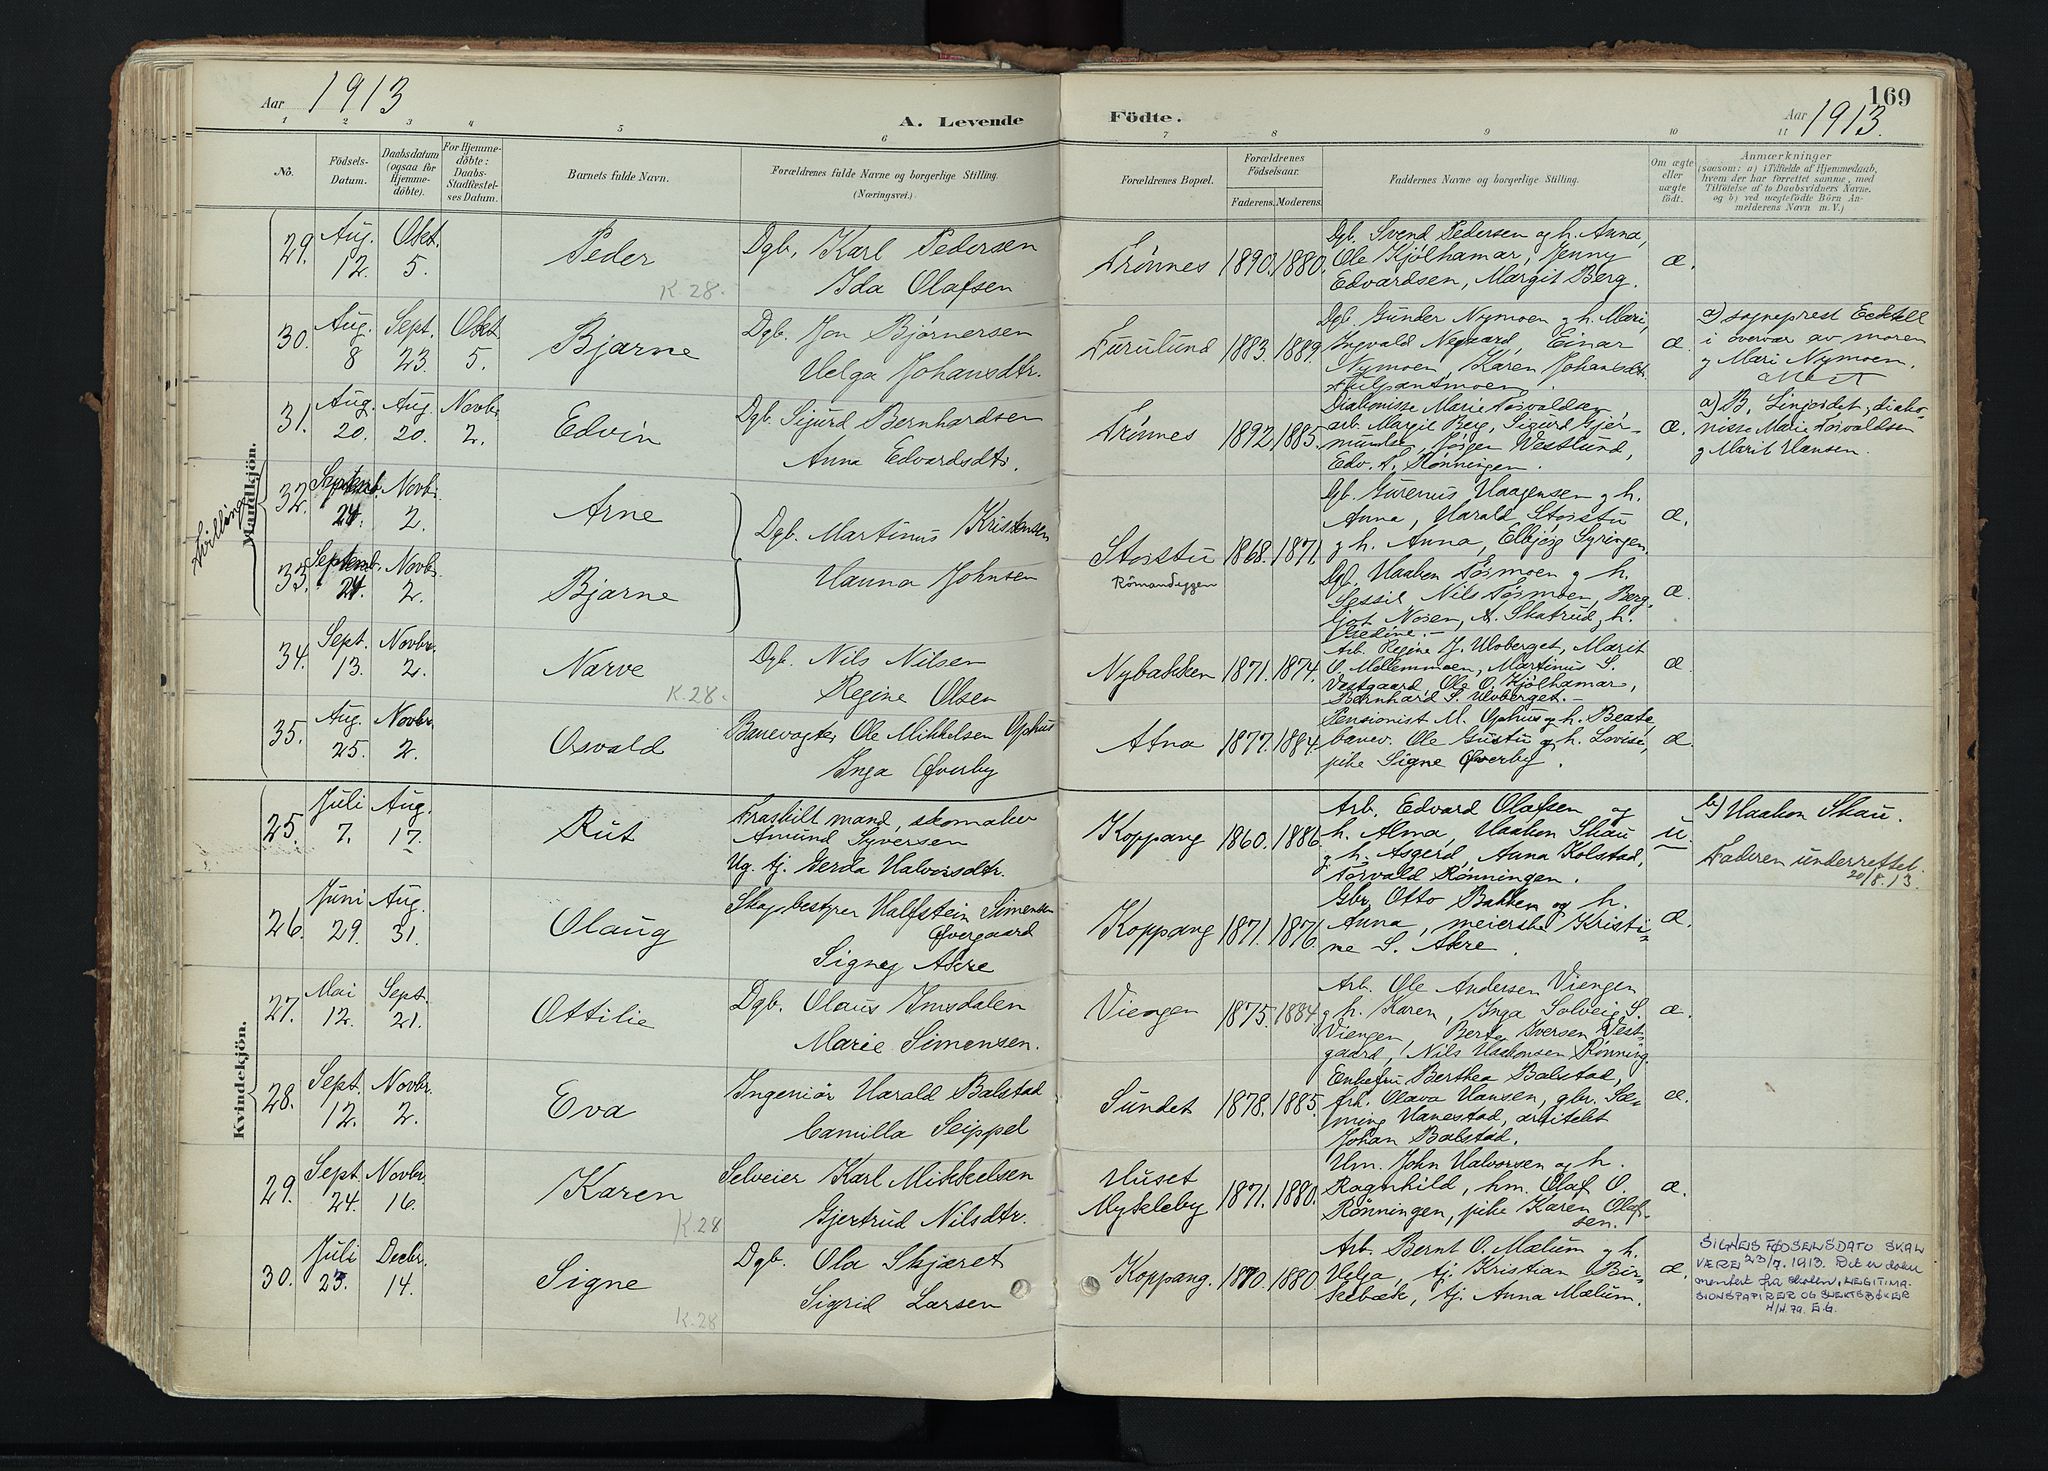 169
Aar 1913
A. Levende
Födte.
Aar 1913.
1 2 3 4 5 6 7 8 9 10 11
No.
Födsels-
Datum.
Daabsdatum
(ogsaa for
Hjemme-
döbte).
For Hjemme-
döbte:
Daabs-
Stadfæstel-
ses Datum.
Barnets fulde Navn.
Forældrenes fulde Navne og borgerlige Stilling.
(Næringsvei.)
Forældrenes Bopæl.
Forældrenes
Födselsaar.
Faderens. Moderens.
Faddernes Navne og borgerlige Stilling.
Om ægte
eller
uægte
født.
Anmærkninger
(saasom: a) i Tilfælde af Hjemmedaab,
hvem der har forrettet samme, med
Tilföielse af to Daabsvidners Navne.
og b) ved uægtefödte Börn An-
melderens Navn m. V.)
Mandkjön.
Tvillinger
29. Aug. 12. Okt. 5.
Peder
K.28.
Dgb. Karl Pedersen
Ida Olafsen
Trönnes 1890. 1880.
Dgb. Svend Pedersen og h. Anna,
Ole Kjølhamar, Jenny
Edvardsen, Margit Berg.
æ.
30. Aug. 8 Sept. 23. Okt. 5.
Bjarne
Dgb. Jon Bjørnersen
Helga Johansdtr.
Furulund 1883. 1889.
Dgb. Gunder Nymoen og h. Mari,
Ingvald Negaard, Einar
Nymoen, Karen Johansdtr.
æ.
a) sogneprest
i overvær av moren
g Mari Nymoen.
31. Aug. 20. Aug. 20. Novbr. 2.
Edvin
Dgb. Sigurd Bernhardsen
Anna Edvardsdtr.
Trönnes 1892. 1885.
Diakonisse Marie Torvaldsen,
arb. Margit Berg, Sigurd Gjer-
mundse, Jørgen Westlund,
Edv. A. Rönningen.
æ.
a) B. Linjordet, diako-
nisse Marie Torvaldsen
g Marit Hansen.
32. Septemb. 24. Novbr. 2.
Arne
Dgb. Martinus Kristensen
Hanna Johnsen
Storstu
Römandeggen
1868. 1871.
Gb. Gurenus Haagensen g h.
Anna, Harald Storstu
g h. Anna, Elbjörg Syringen.
æ.
33. Septemb. 24. Novbr. 2.
Bjarne
Dgb. Haaken Törmoen g h.
Sessil, Nils Törmoen, Berg-
ljot Nosen, A. Skatrud, h.
Gedine.-
æ.
34. Sept. 13. Novbr. 2.
Narve
K.28.
Dgb. Nils Nilsen
Regine Olsen
Nybakken 1871. 1874.
Arb. Regine J. Ulvberget, Marit
O. Möllemmoen, Martinus S.
Vestgaard, Ole O. Kjölhamar,
Bernhard S. Ulvberget.-
æ
35. Aug. 25. Novbr. 2.
Osvald
Banevogter Ole Mikkelsen Ophus
Inga Øverby
Atna 1877. 1884.
Pensionist M. Ophus og h. Beate,
banev. Ole Gustu og h. Lovise,
pike Signe Øverby.
æ
Kvindekjön.
25. Juli 7. Aug. 17.
Rut
Fraskilt mand, skomaker
Amund Syversen
Ug. tj. Gerda Halvorsdtr.
Koppang 1860. 1886.
Arb. Edvard Olafsen og
h. Alma, Haakon Skau
g h. Asgerd, Anna Kolstad,
Torvald Rönningen.
u.
b) Haakon Skau.
Faderen underrettet.
20/8.13.
26. Juni 29. Aug. 31.
Olaug
Skogbestyrer Halfstein Simensen
Øvergaard
Signe Akre
Koppang 1871. 1876.
Gbr. Otto Bakken og h.
Anna, meierske Kristi-
ne S. Akre.
æ.
27. Mai 12. Sept. 21.
Ottilie
Dgb. Olaus Imsdalen
Marie Simensen.
Viengen 1875. 1884.
Arb. Ole Andersen Viengen
g h. Karen, Inga Solveig S.
Viengen, Berte Iversen Vest-
gaard, Nils Haakonsen Rönning.
æ.
28. Sept. 12. Novbr. 2.
Eva
Ingeniör Harald Balstad
Camilla Seippel
Sundet 1878. 1885.
Enkefru Berthea Balstad,
frk. Olava Hansen, gbr. Sæ-
ming Hanestad, arkitekt
Johan Balstad.
æ.
29. Sept. 24. Novbr. 16.
Karen
K.28
Selveier Karl Mikkelsen
Gjertrud Nilsdtr.
Huset
Mykleby 1871. 1880.
Hm. John Halvorsen og h.
Ragnhild, hm. Olaf O.
Rönningen, pike Karen Olaf-
sen.
æ.
30. Juli 23. Decbr. 14.
Signe
K.28
Dgb. Ola Skjæret
Sigrid Larsen
Koppang. 1870. 1880.
Arb. Bernt O. Mælum g h.
Helga, tj. Kristian Bir-
kebæk, tj. Anna Mælum.
æ.
SIGNES FØDSELSDATO SKAL
VÆRE 23/7. 1913. Det er doku
mentert fra skolen, LEGITIMA-
SIONSPAPIRER OG SLEKTSBØKER
4/4.79. E.G.